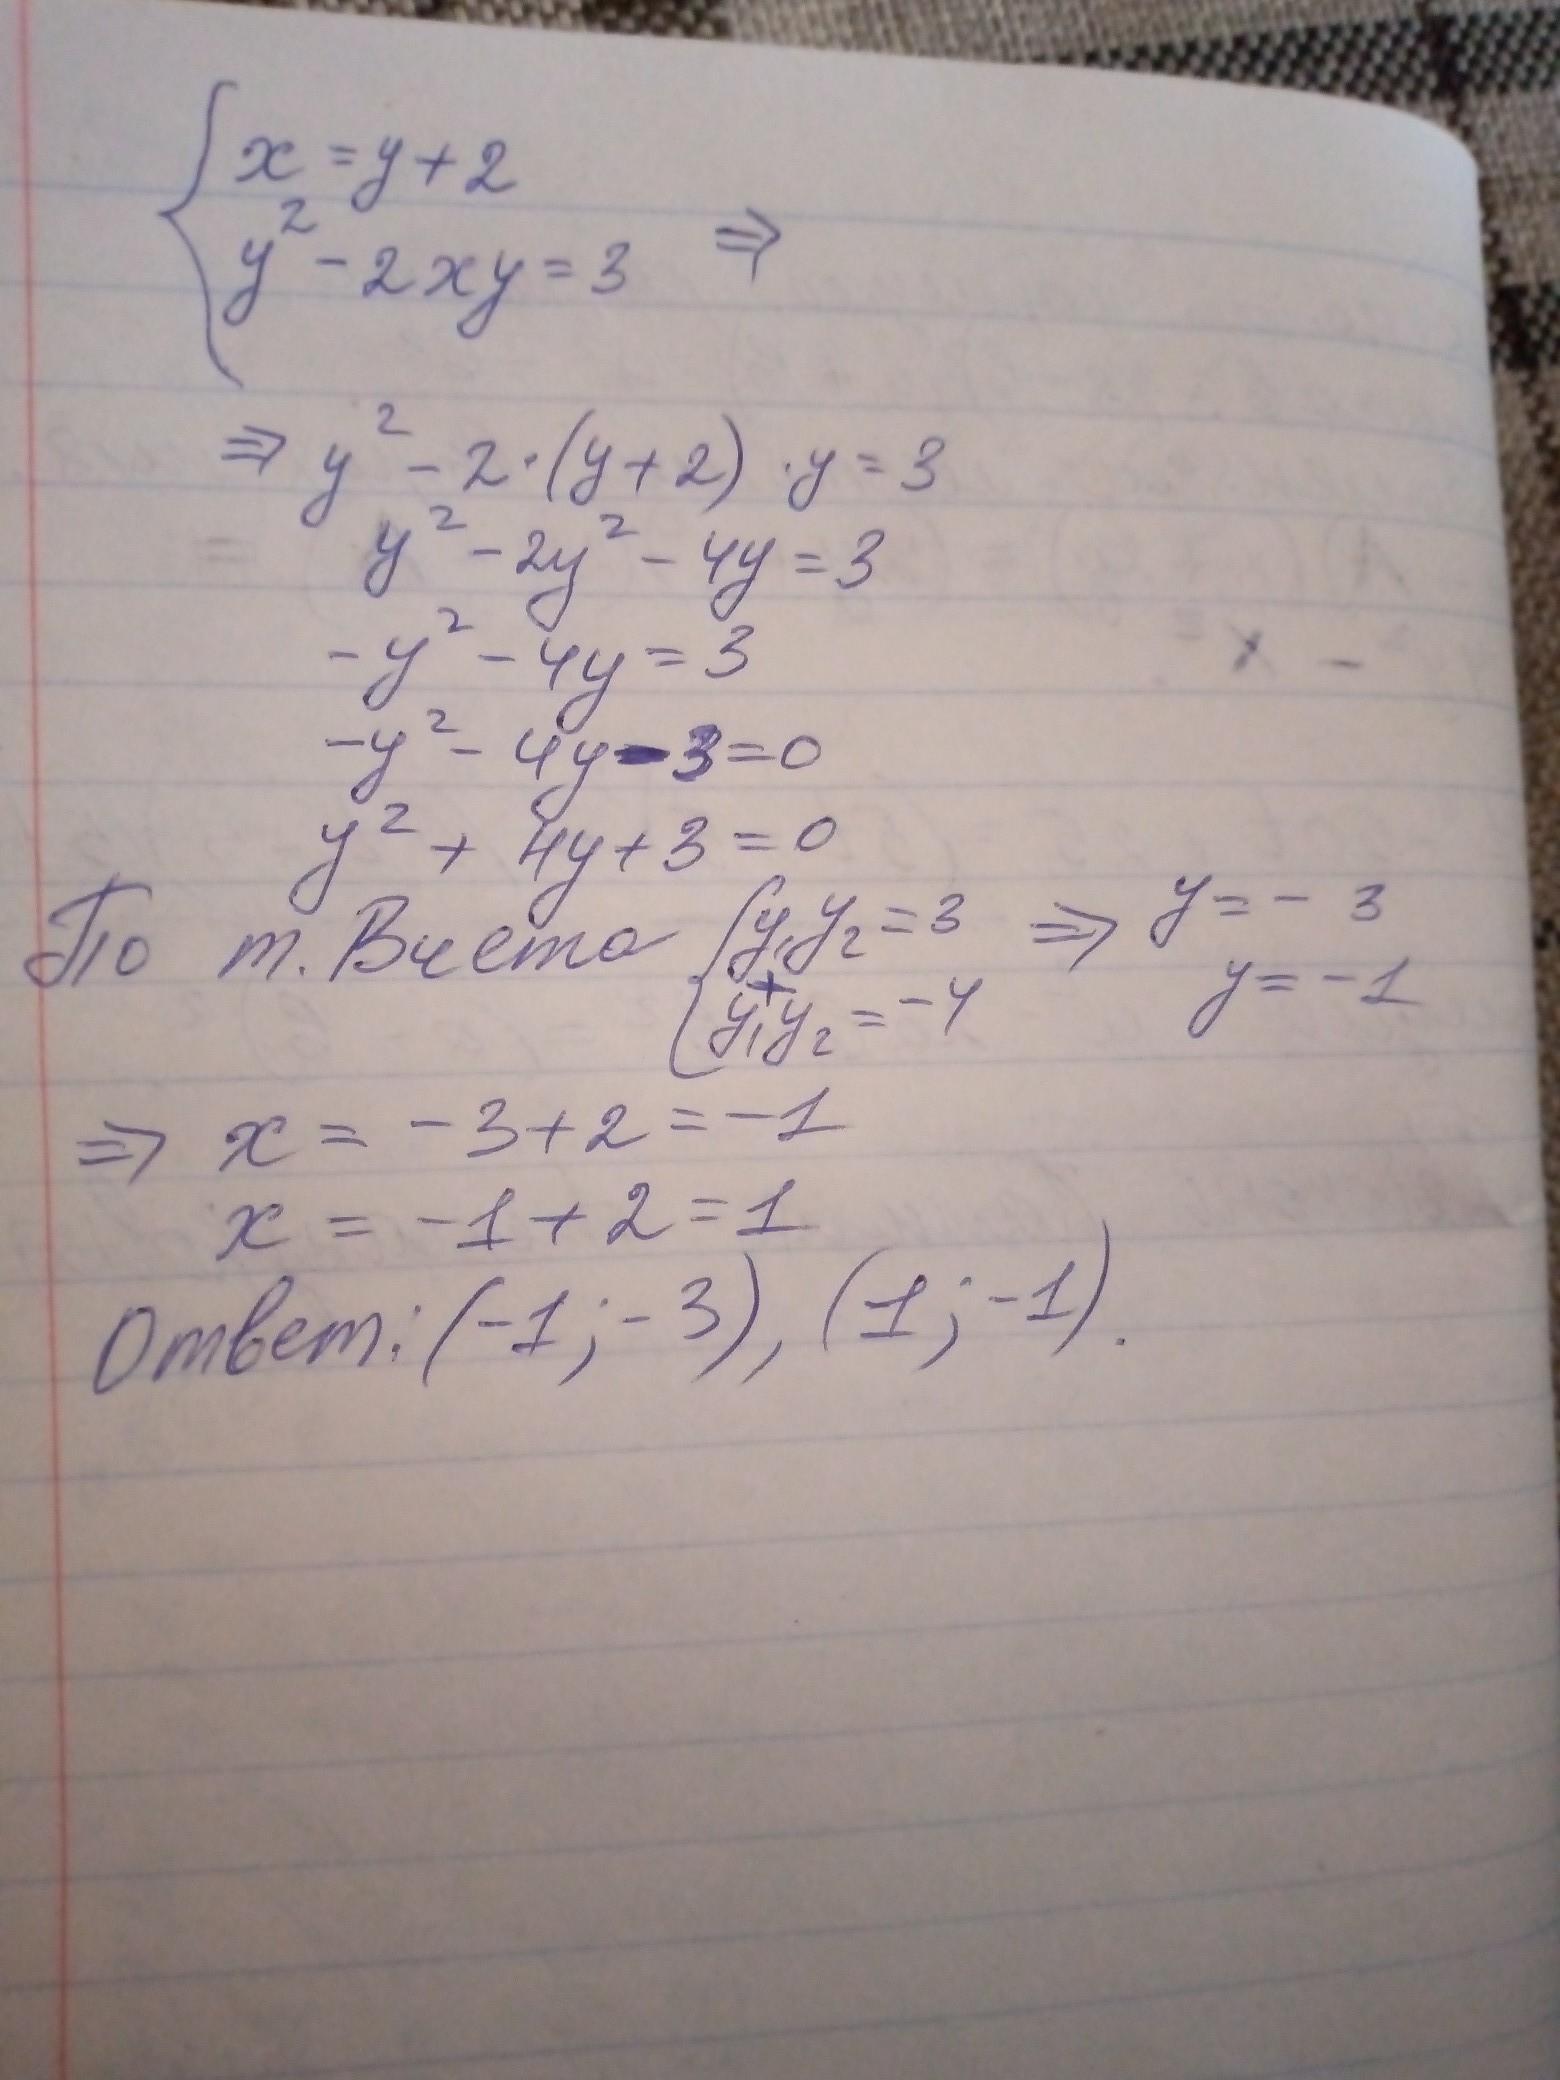 { x = y + 2
y² - 2xy = 3 ⇒
⇒ y² - 2·(y+2)·y = 3
y² - 2y² - 4y = 3
-y² - 4y = 3
-y² - 4y - 3 = 0
y² + 4y + 3 = 0
По т. Виета { y₁y₂ = 3 ⇒ y = - 3
y₁ + y₂ = -4 y = -1
⇒ x = -3 + 2 = -1
x = -1 + 2 = 1
Ответ: (-1; -3), (1; -1).